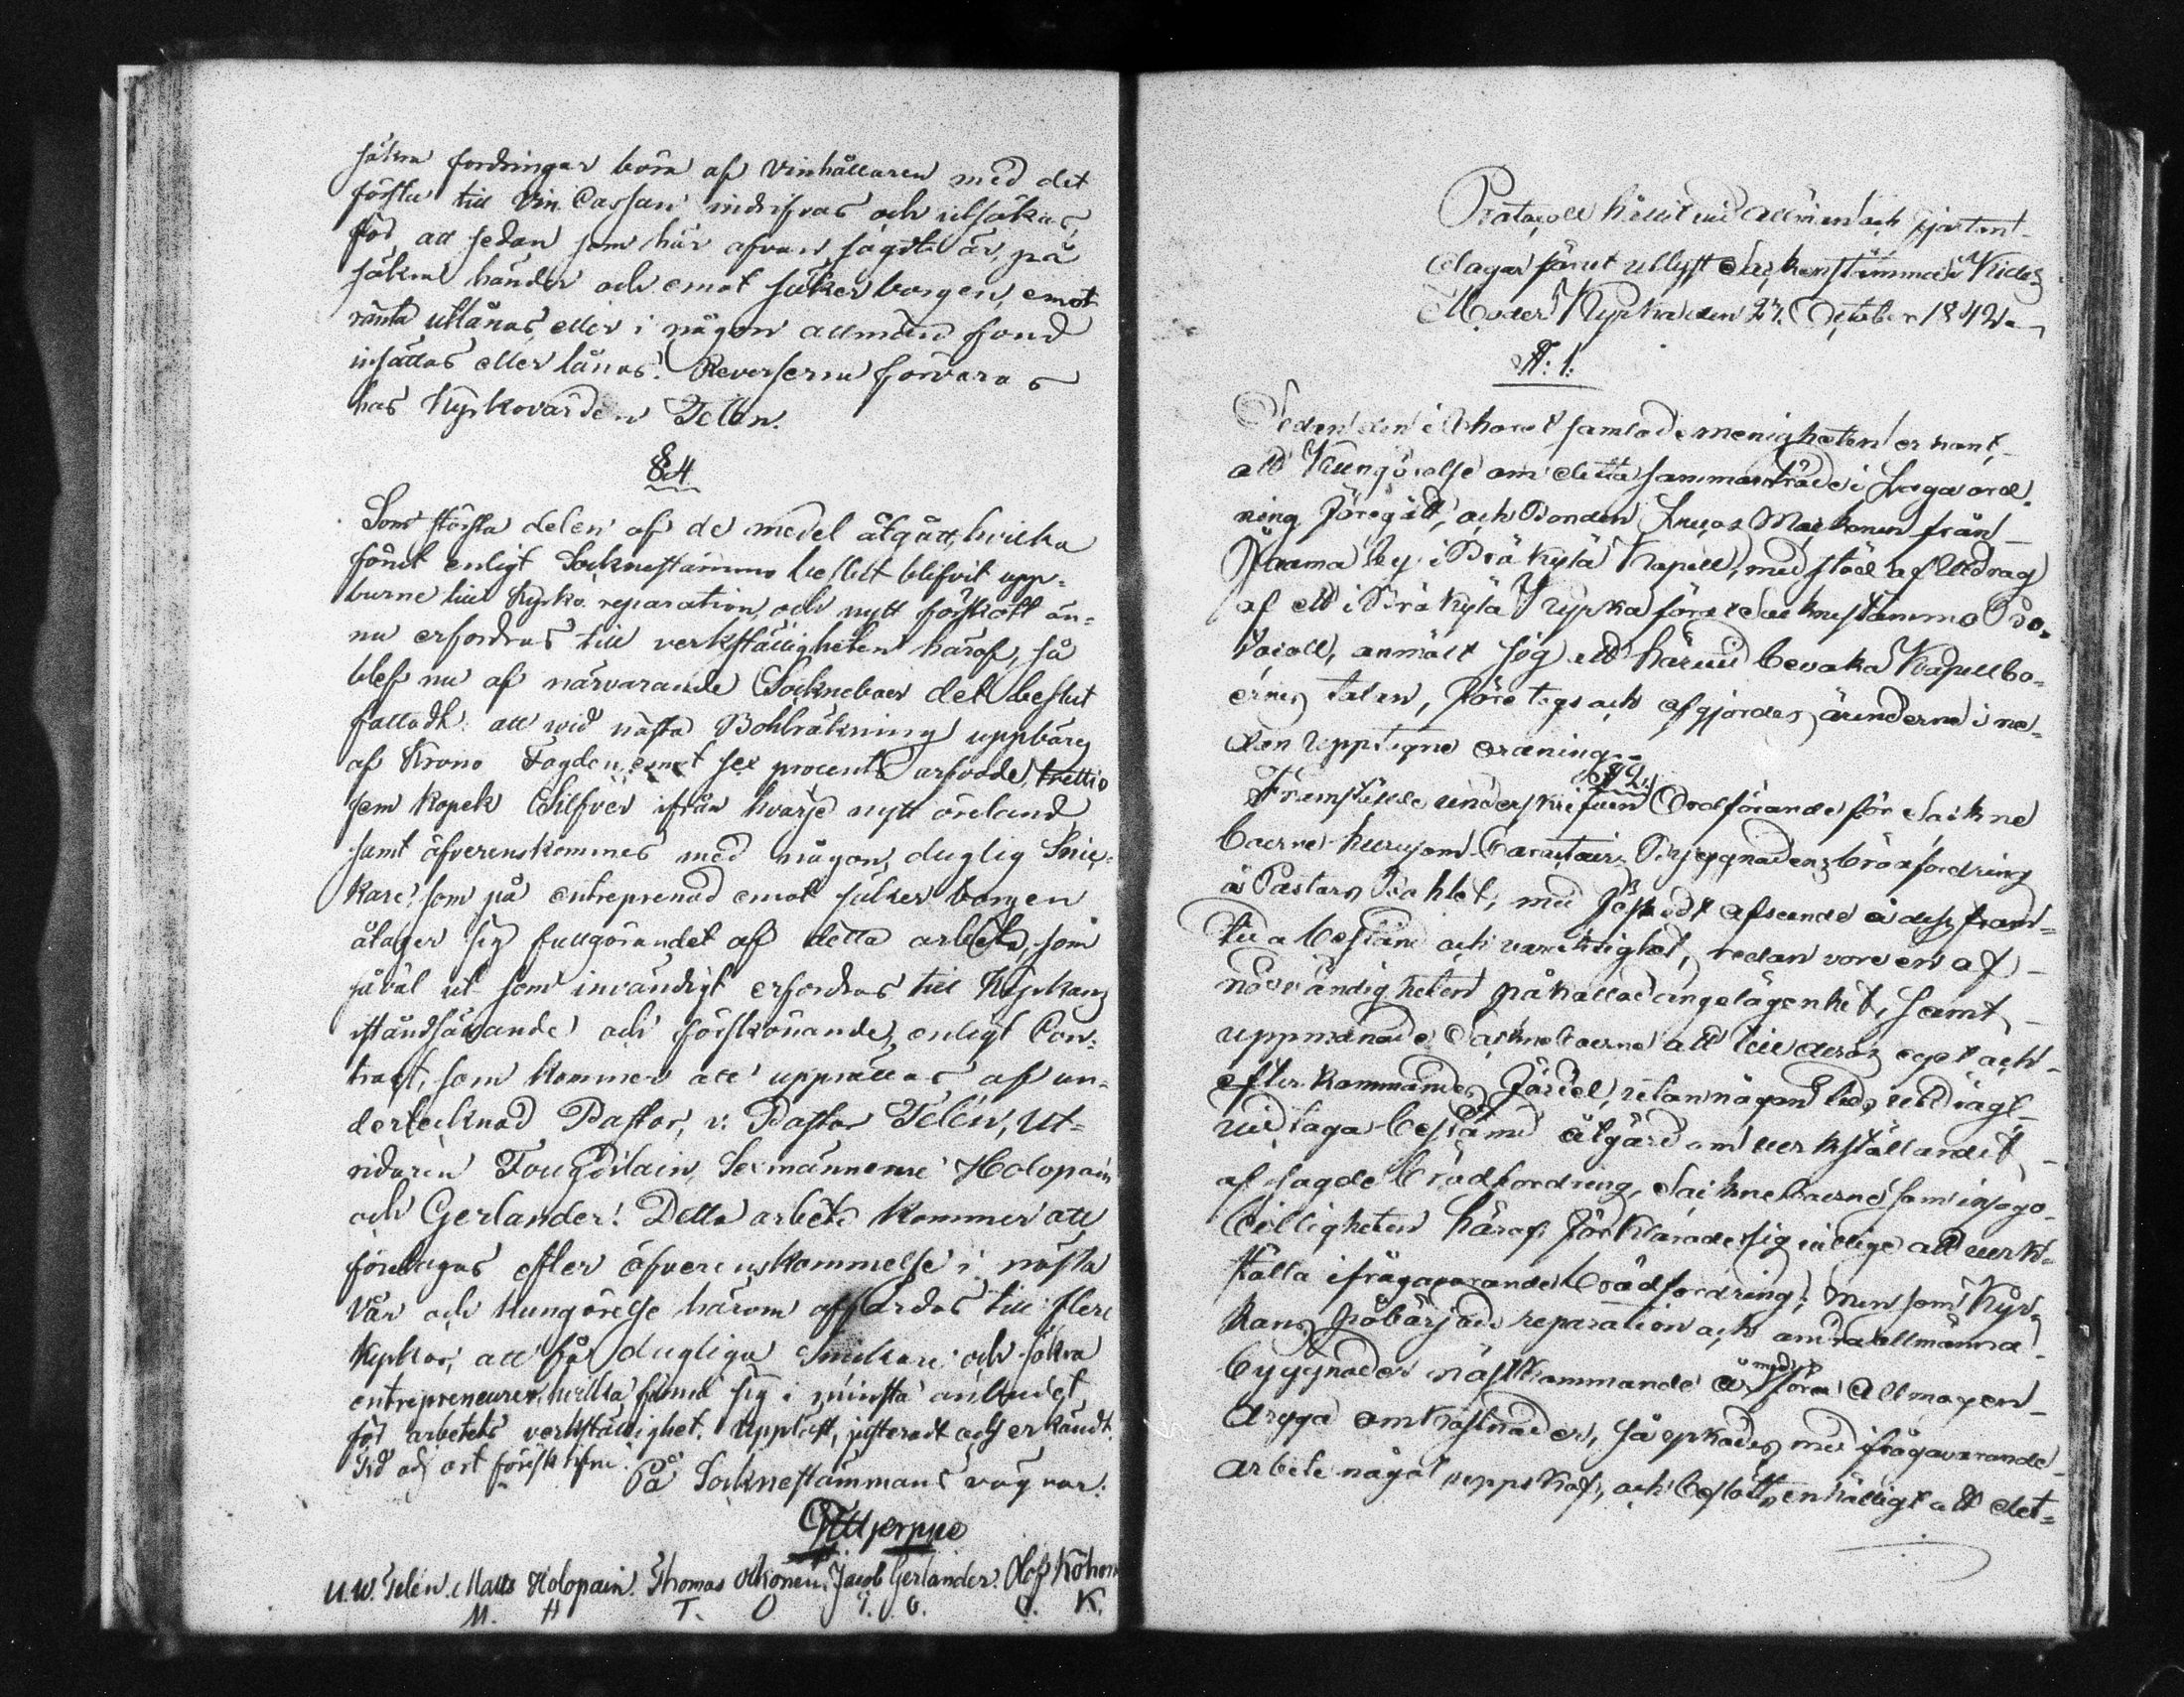 säkra fordringar böra af Vinhållaren med det
första till Vin Cassan indrifvas och utsökas,
för att sedan som här ofvan sagdt är, på
säkra händer och emot säker borgen, emot
ränta utlånas, eller i någon allmän fond
insättas eller lånas. Reverserne förvaras
hos Kyrkovärden Telen.
§ 4
Som största delen af de medel åtgått, hvilka
förut enligt Sockenstämmo beslut blifvit upp-
burne till Kyrko reparation, och nytt förskott än-
nu erfordras till verkställigheten häraf, så
blef nu af närvarande Sockneboer det beslut
fattadt: att wid nästa Bohlräkning uppbäres
af Krono Fogden emot sex procents arfvode, trettio
fem Kopek Silfver ifrån hvarje nytt öreland
samt öfverenskommes med någon duglig Snic-
kare som på entreprenad emot säker borgen
åtager sig fullgörandet af detta arbete, som
såväl ut- som invändigt erfordras till Kyrkans
iståndsättande och förskönande, enligt Con-
tract, som kommer att upprättas af un-
dertecknad Pastor, v: Pastor Telén, Ut-
ridaren Fougdilain, Sexmännerne Holopain
och Gerlander. Detta arbete kommer att
företagas efter öfverenskommelse i nästa
Vår och Kungörelse härom affärdas till flere
Kyrkor, att få dugliga Snickare och säkra
entrepreneurer, hvilka finna sig i minsta anbudet
för arbetets verkställighet. Uppläst, justeradt och erkändt.
Tid och ort förut skrifne.
På Socknestämmans vägnar:
U. W. Telén. Matts Holopain. Thomas Okonen. Jacob Gerlander. Olof Kohon
M. H T. O J. G. O. K.
Protocoll hållit vid allmän och fjorton
dagar förut utlyst Sockenstämma i Kides
Moder Kyrka den 27. October 1842.
N: 1.
Sedan den i Choret samlade menigheten ernant,
att Kungörelse om detta sammanträde i Laga ord-
ning föregått, och Bonden Lucas Markonen från
Jaama by i Bräkylä Kapell, med stöd af Utdrag
af ett i Bräkylä Kyrka fördt Sockenstämmo Pro-
tocoll, anmält sig att härvid bevaka Kapellbo-
ernes talan, företogs och afgjordes ärenderne i ne-
dan upptagne ordning.
§ 2.
Framstälde underskrifven Ordförande för Sockne
boerne hurusom Caractairs Byggnadens brädfordring
å Pastors Bohlet, med fästadt afseende å dess fram-
tida bestånd och varaktighet, redan vore en af
nödvändigheten påkallad angelägenhet, samt
uppmanade Socknebaerne att till deras eget och
efterkommandes fördel, utan någon tids utdrägt
vidtaga bestämd åtgärd om verkställandet
af sagde brädfordring, Socknebaerne som insågo
billigheten häraf förklarade sig villige att verk-
ställa ifrågavarande brädfordring; men som Kyr-
kans påbörjade reparation och andra allmänna
byggnader nästkommande år medföra Allmogen
dryga omkostnader, så yrkades med ifrågavarande
arbete något uppskof, och beslöts enhälligt att det-